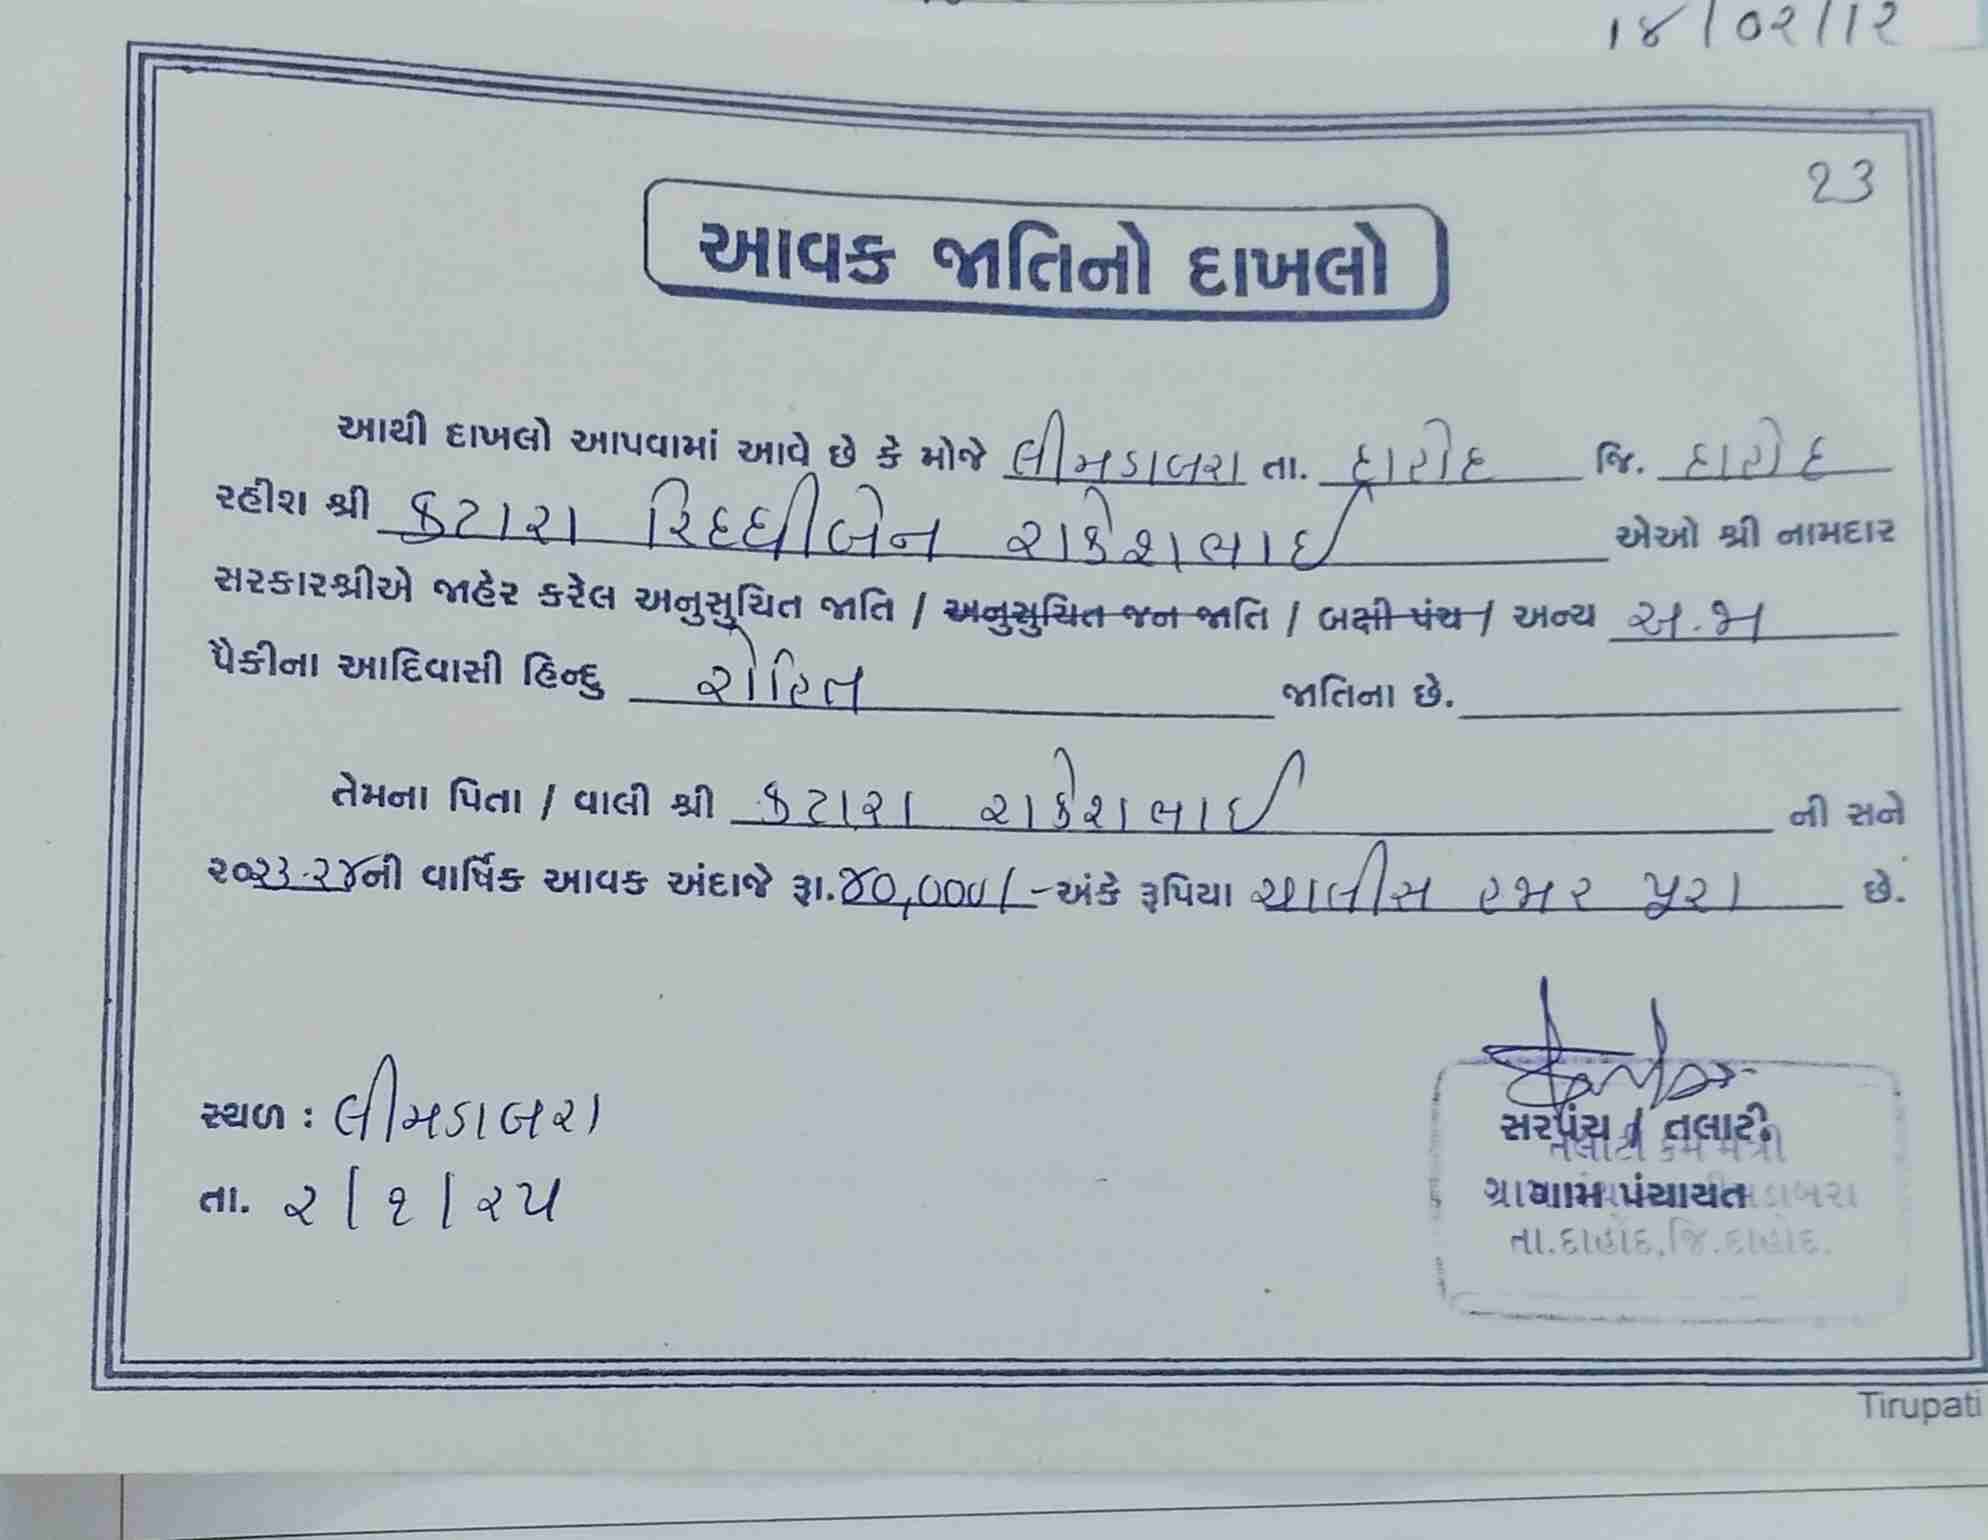 ૧૪/૦૨/૧૨
23
આવક જાતિનો દાખલો
આથી દાખલો આપવામાં આવે છે કે મોજે લીમડાબરા તા. દાહોદ જિ. દાહોદ
રહીશ શ્રી કટારા રિદ્દધીબેન રાકેશભાઈ એઓ શ્રી નામદાર
સરકારશ્રીએ જાહેર કરેલ અનુસુચિત જાતિ / અનુસુચિત જન જાતિ / બક્ષી પંચ / અન્ય અ.જા
પૈકીના આદિવાસી હિન્દુ રોહિત જાતિના છે.
તેમના પિતા / વાલી શ્રી કટારા રાકેશભાઈ ની સને
૨૦૨૩-૨૪ની વાર્ષિક આવક અંદાજે રૂા.૪૦,૦૦૦/- અંકે રૂપિયા ચાલીસ હજાર પુરા છે.
સ્થળ : લીમડાબરા
તા. ૨/૧/૨૫
સરપંચ / તલાટી
તલાટી કમ મંત્રી
ગ્રામ પંચાયત
તા.દાહોદ,જિ.દાહોદ.
Tirupati